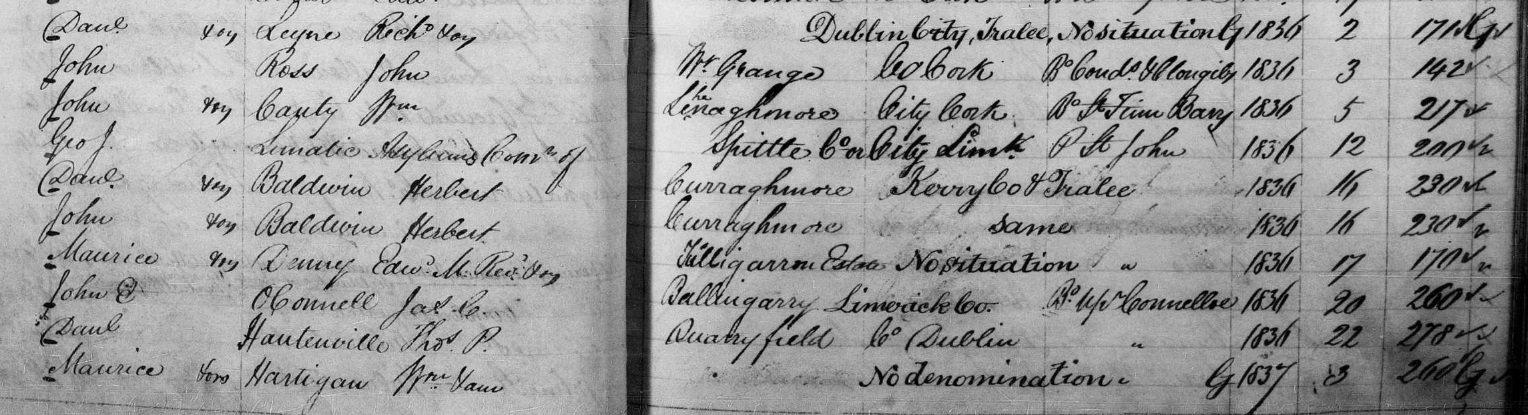 Danl. & ors Leyne Richd & ors Dublin City, Tralee, No situation G 1836 2 171
John Ross John Wt Grange Co Cork Bo Condo & Clongibs 1836 3 142
John & ors Canty Wm Lenaghmore City Cork Bo St Finn Barrs 1836 5 217
Geo J. Lunatic Asylums Comrs of Spittle Co or City Limk. P St John 1836 12 200
Danl. & ors Baldwin Herbert Curraghmore Kerry Co & Tralee 1836 16 230
John & ors Baldwin Herbert Curraghmore same 1836 16 230
Maurice & ors Denny Edwd. M. Revd. & ors No situation " 1836 17 170
John OConnell Jas. C. Ballingarry Limerick Co. Bo. Upr Connelloe 1836 20 260
Danl Hautenville Thos. P. Quarryfield Co Dublin " 1836 22 278
Maurice & ors Hartigan Wm & anr No denomination " G 1837 3 260